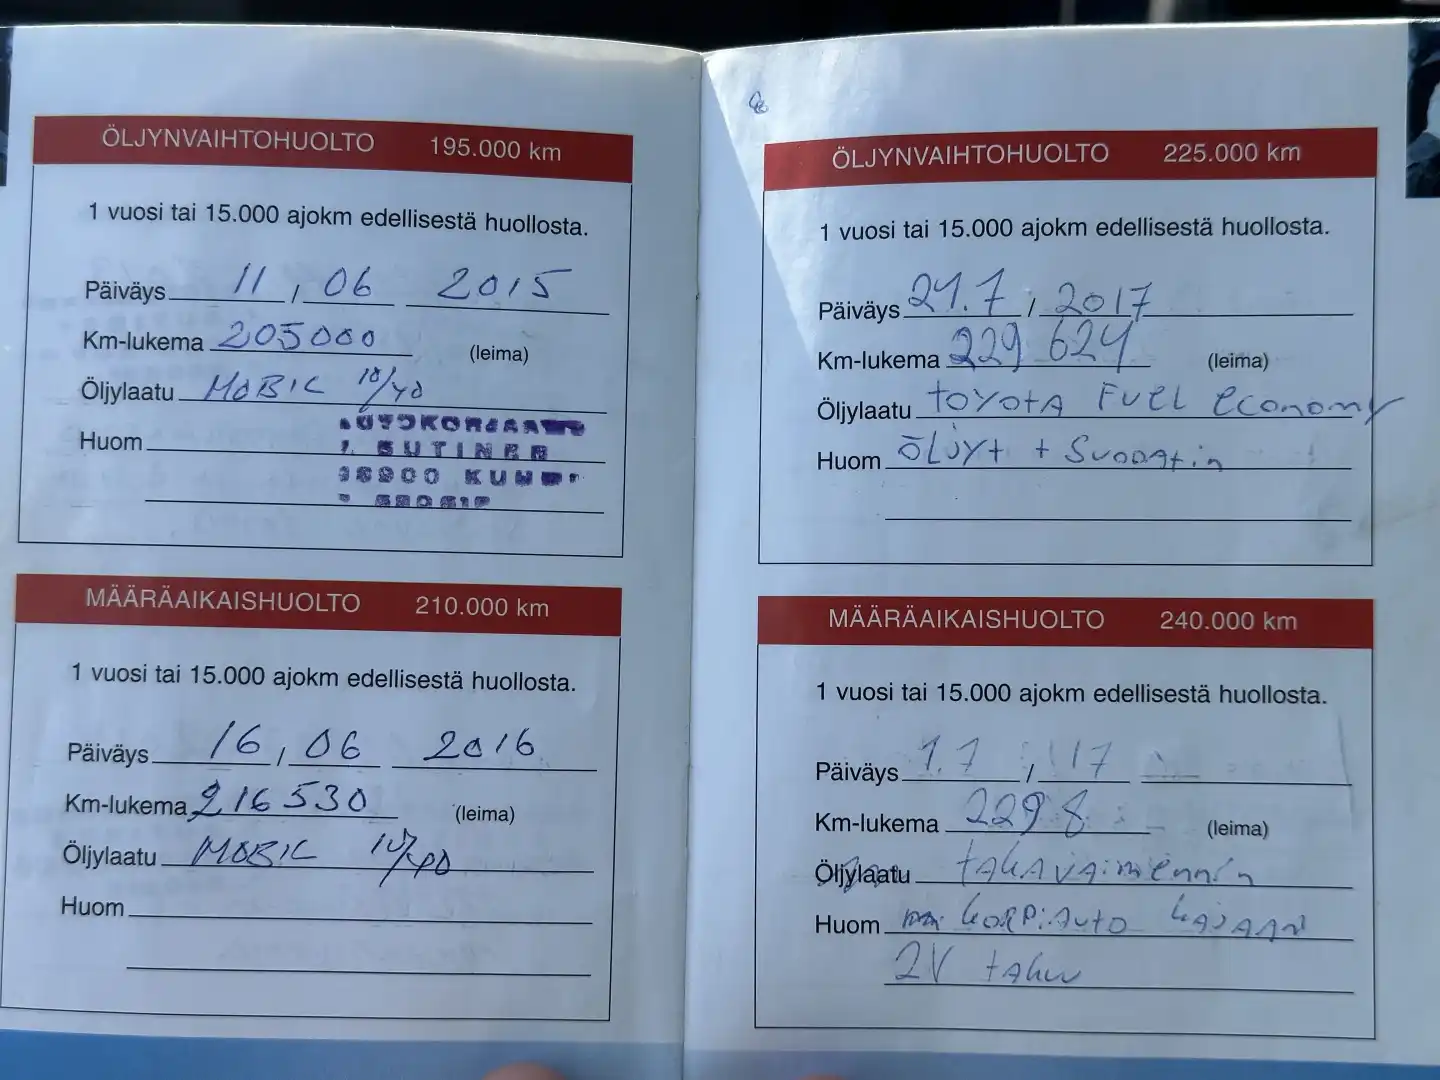 ÖLJYNVAIHTOHUOLTO 195.000 km
1 vuosi tai 15.000 ajokm edellisestä huollosta.
Päiväys 11 , 06 2015
Km-lukema 205000 (leima)
Öljylaatu MOBIL 10/40
Huom
MÄÄRÄAIKAISHUOLTO 210.000 km
1 vuosi tai 15.000 ajokm edellisestä huollosta.
Päiväys 16 , 06 2016
Km-lukema 216530 (leima)
Öljylaatu MOBIL 10/40
Huom
ÖLJYNVAIHTOHUOLTO 225.000 km
1 vuosi tai 15.000 ajokm edellisestä huollosta.
Päiväys 21.7 , 2017
Km-lukema 229 624 (leima)
Öljylaatu TOYOTA FUEL economy
Huom ÖLJYt + Suodatin
MÄÄRÄAIKAISHUOLTO 240.000 km
1 vuosi tai 15.000 ajokm edellisestä huollosta.
Päiväys 1.7 , 17
Km-lukema (leima)
Öljylaatu takavaimennin
Huom korpiAuto kajaani
2V takuu